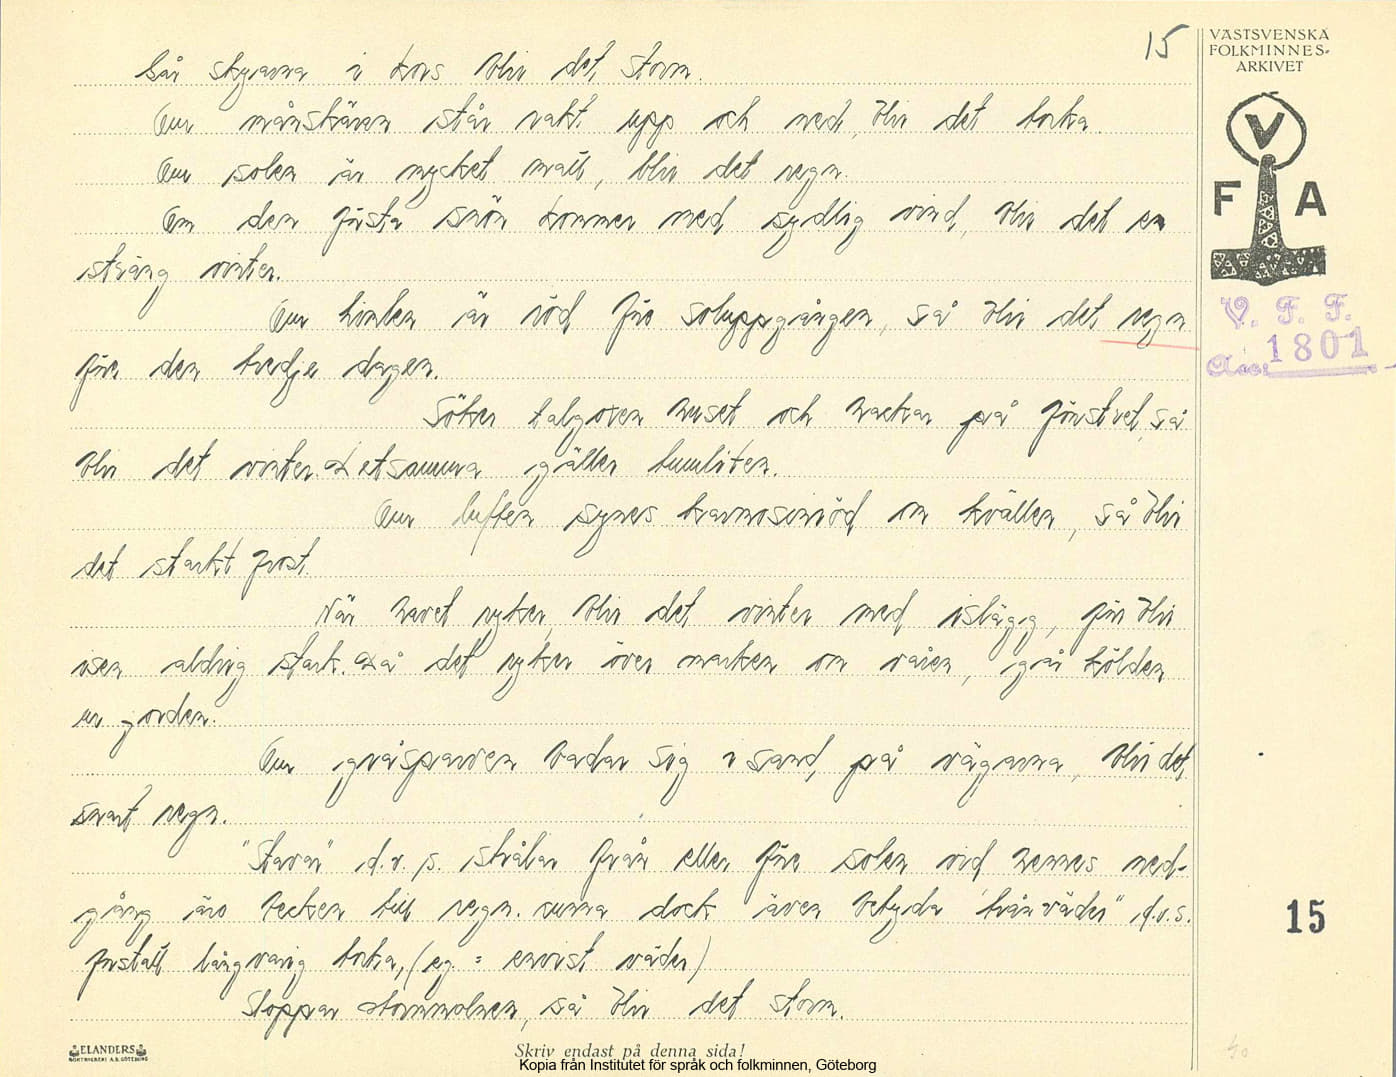 15
VÄSTSVENSKA
FOLKMINNES-
ARKIVET
V
F A
V. F. F.
Acc: 1801
Går skyarna i kors blir det storm.
Om månskäran står rakt upp och ned, blir det torka.
Om solen är mycket matt, blir det regn.
Om den första snön kommer med sydlig vind, blir det en
sträng vinter.
Om himlen är röd före soluppgången, så blir det regn
före den tredje dagen.
Söker talgoxen huset och hackar på fönstret, så
blir det vinter. Detsamma gäller tumliten.
Om luften synes karmosinröd om kvällen, så blir
det starkt frost.
När havet ryker, blir det vinter med islägg, förr blir
isen aldrig stark. Då det ryker över marken om våren, går kölden
ur jorden.
Om gråsparven badar sig i sand på vägarna, blir det
snart regn.
"Stavar" d.v.s. strålar från eller före solen vid hennes ned-
gång äro tecken till regn. kunna dock även betyda "trånväder" d.v.s.
fortsatt långvarig torka, (eg. = envist väder)
Stoppar stormmolnen, så blir det storm.
15
ELANDERS
BOKTRYCKERI A.B. GÖTEBORG
Skriv endast på denna sida!
Kopia från Institutet för språk och folkminnen, Göteborg